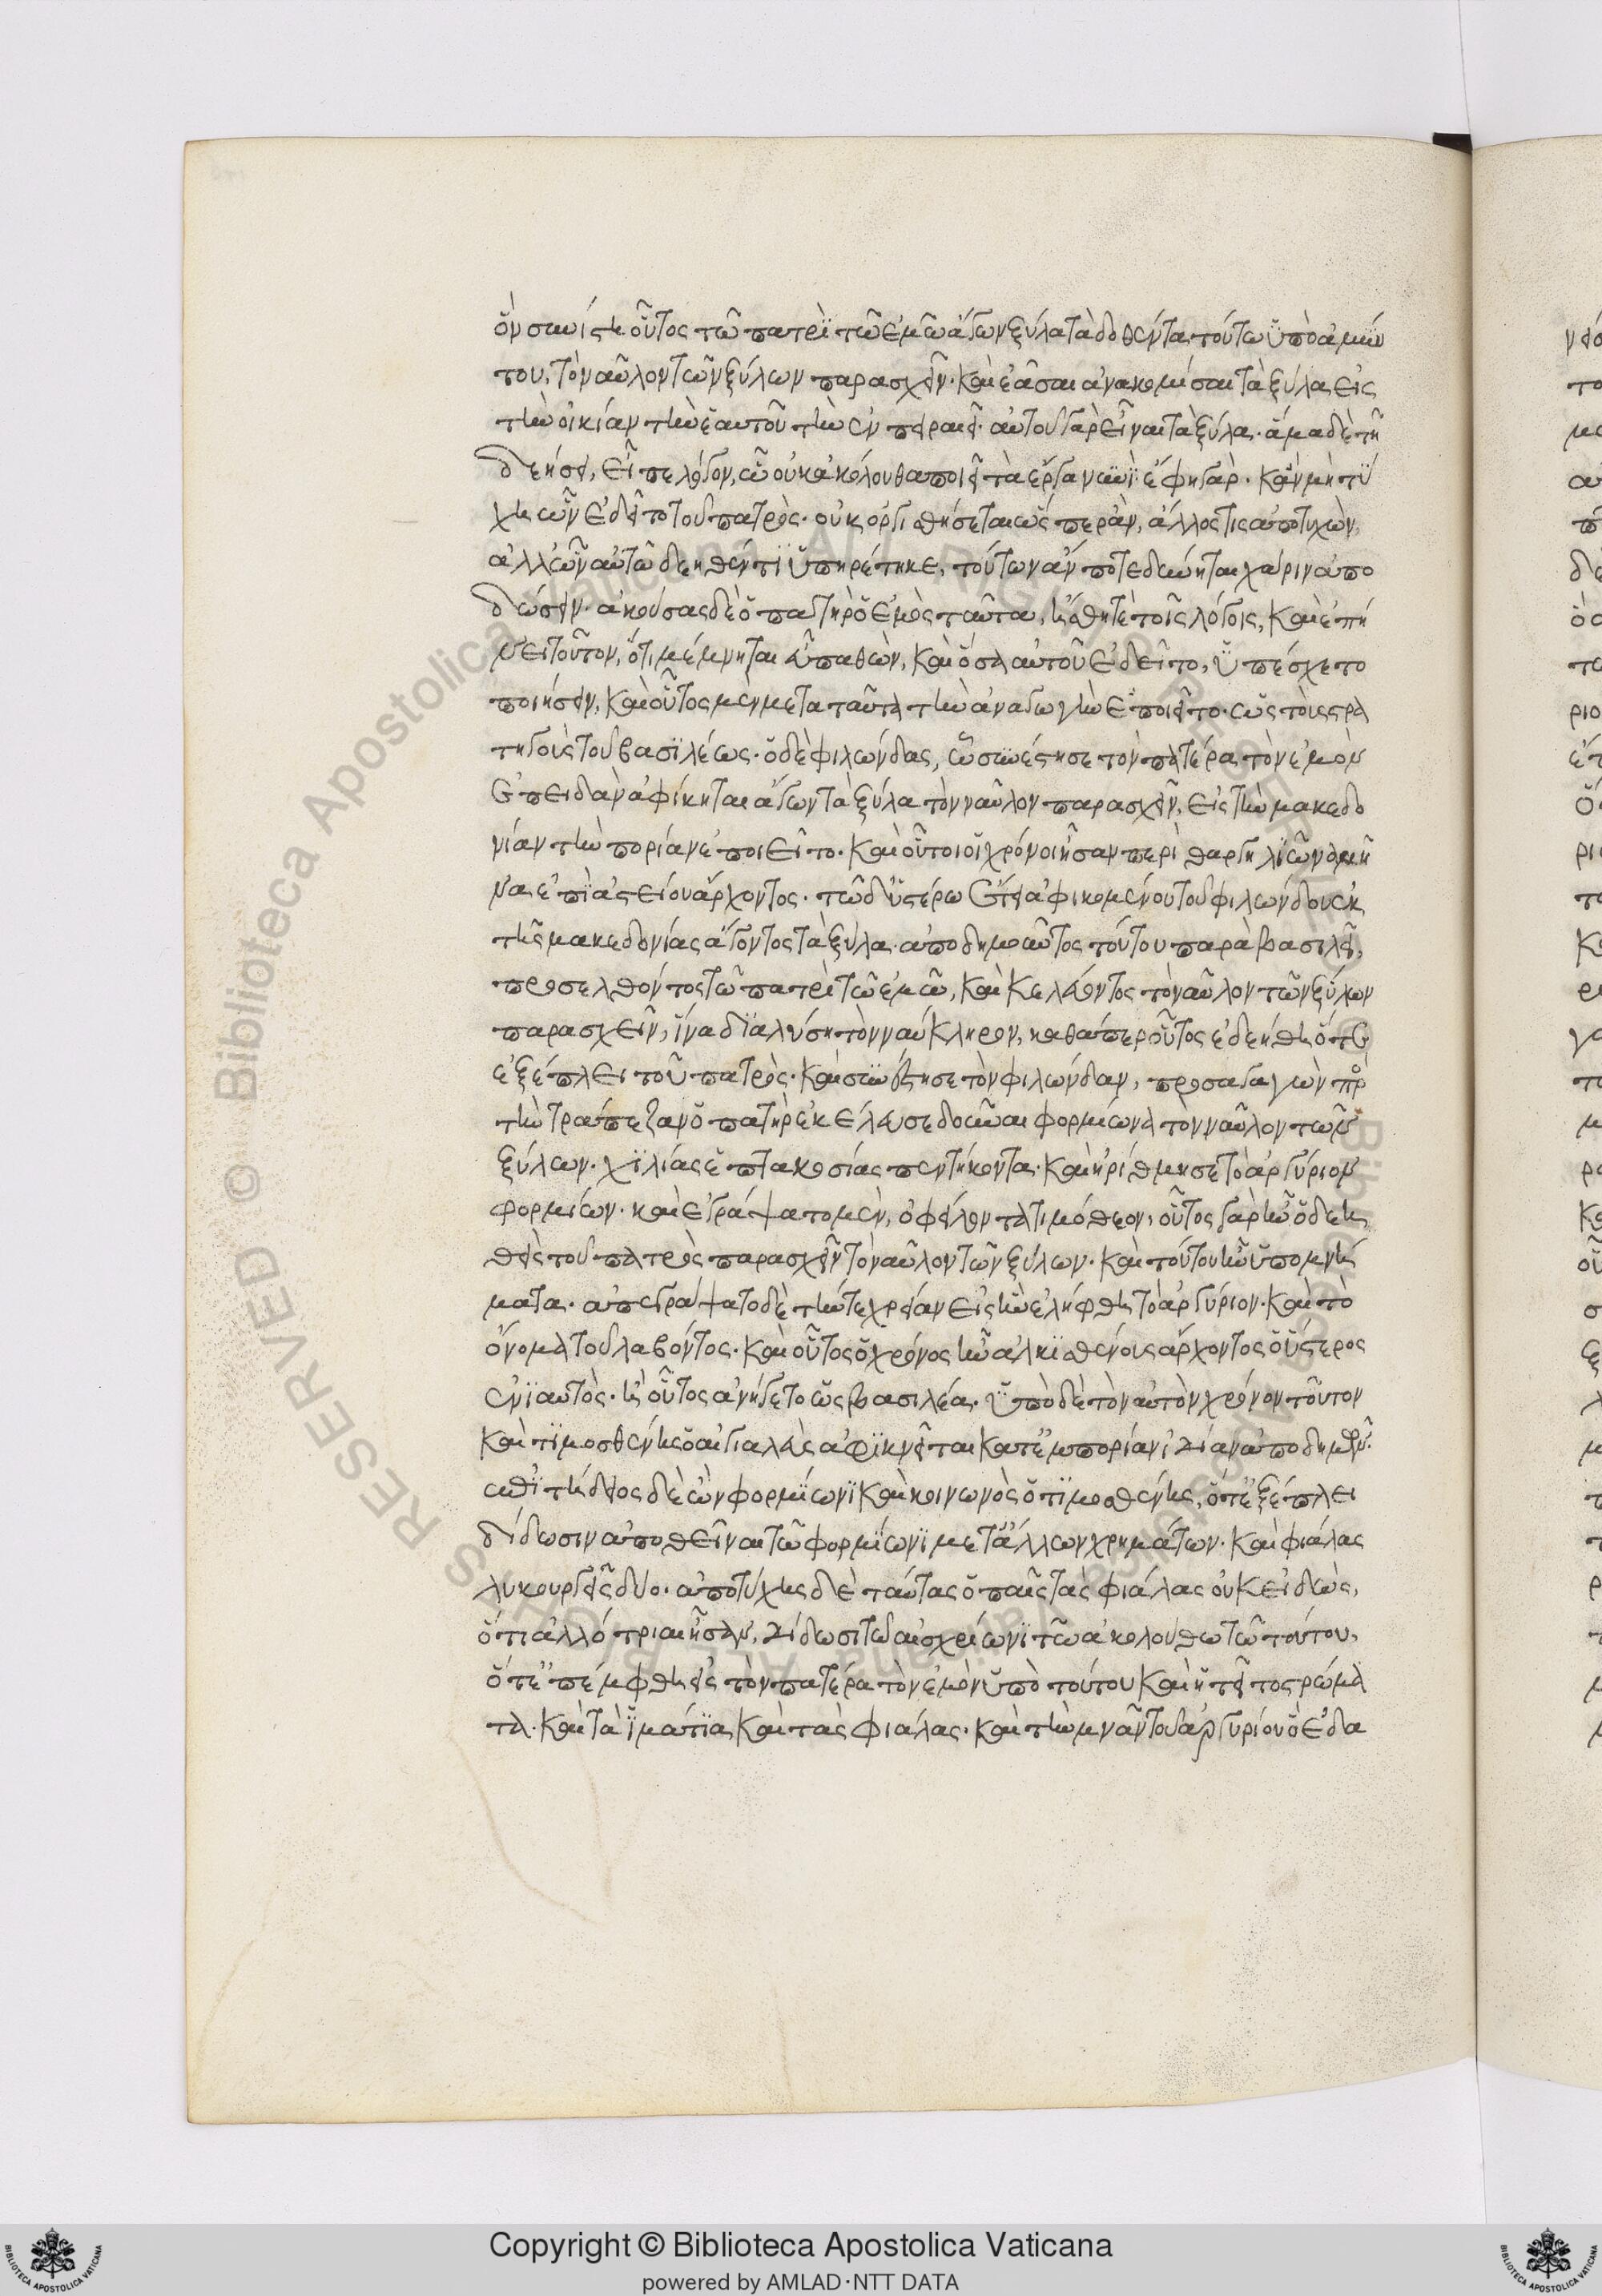 ὃν συνίστη οὗτος τῶ πατρὶ τῶ ἐμῶ ἄγων ξύλα τὰ δοθέντα τούτω ὑπὸ ἀμύν
του, τὸ ναῦλον τῶν ξύλων παρασχεῖν· καὶ ἐᾶσαι ἀνακομίσαι τὰ ξύλα εἰς
τὴν οἰκίαν τὴν ἑαυτοῦ τὴν ἐν πειραιεῖ· αὐτοῦ γὰρ εἶναι τὰ ξύλα· ἅμα δὲ τῆ
δεήσει, εἶπε λόγον, ὧ οὐκ ἀκόλουθα ποιεῖ τὰ ἔργα νυνὶ· ἔφη γὰρ· κἂν μὴ τύ
χη ὧν ἐδεῖτο τοῦ πατρὸς· οὐκ ὀργισθήσεται ὥσπερ ἂν, ἄλλος τις ἀποτυχὼν,
ἀλλ' ὧν αὐτῶ δεηθέντι ὑπηρέτηκε, τούτων ἄν ποτε δύνηται χάριν ἀπο
δώσειν· ἀκούσας δὲ ὁ πατὴρ ὁ ἐμὸς ταῦτα, ἥσθη τὲ τοῖς λόγοις, καὶ ἐπή
νει τοῦτον, ὅτι μέμνηται εὖ παθὼν, καὶ ὅσα αὐτοῦ ἐδεῖτο, ὑπέσχετο
ποιήσειν, καὶ οὗτος μὲν μετὰ ταῦτα τὴν ἀναγωγὴν ἐποιεῖτο· ὡς τοὺς στρα
τηγοὺς τοῦ βασιλέως· ὁ δὲ φιλώνδας, ὧ συνέστησε τὸν πατέρα τὸν ἐμὸν
ἐπειδὰν ἀφίκηται ἄγων τὰ ξύλα τὸν ναῦλον παρασχεῖν, εἰς τὴν μακεδο
νίαν τὴν πορίαν ἐποιεῖτο· καὶ οὗτοι οἱ χρόνοι ἦσαν περὶ θαργηλιῶνα μῆ
να ἐπὶ ἀστείου ἄρχοντος· τῶ δ' ὑστέρω ἔτει ἀφικομένου τοῦ φιλώνδου ἐκ
τῆς μακεδονίας ἄγοντος τὰ ξύλα· ἀποδημοῦντος τούτου παρὰ βασιλεῖ,
προσελθόντος τῶ πατρὶ τῶ ἐμῶ, καὶ κελεύοντος τὸ ναῦλον τῶν ξύλων
παρασχεῖν, ἵνα διαλύση τὸν ναύκληρον, καθάπερ οὗτος ἐδεήθη ὅτε
ἐξέπλει τοῦ πατρὸς· καὶ συνέστησε τὸν φιλώνδαν, προσαγαγὼν πρ
τὴν τράπεζαν ὁ πατὴρ ἐκέλευσε δοῦναι φορμίωνα τὸν ναῦλον τῶν
ξύλων· χιλίας ἑπτακοσίας πεντήκοντα· καὶ ἠρίθμησε τὸ ἀργύριον
φορμίων· καὶ ἐγράψατο μὲν, ὀφείλοντα τιμόθεον, οὗτος γὰρ ἦν ὁ δεη
θεὶς τοῦ πατρὸς παρασχεῖν τὸ ναῦλον τῶν ξύλων· καὶ τούτου ἦν ὑπομνή
ματα· ἀπεγράψατο δὲ τήν τε χρείαν εἰς ἣν ἐλήφθη τὸ ἀργύριον· καὶ τὸ
ὄνομα τοῦ λαβόντος· καὶ οὗτος ὁ χρόνος ἦν ἀλκισθένους ἄρχοντος ὁ ὕστερος
ἐνιαυτὸς· ἢ οὗτος ἀνήγετο ὡς βασιλέα· ὑπὸ δὲ τὸν αὐτὸν χρόνον τοῦτον
καὶ τιμοσθένης ὁ αἰγιαλεὺς ἀφικνεῖται κατ' ἐμπορίαν ἰδίαν ἀποδημῶν·
ἐπιτήδειος δὲ ὢν φορμίωνι καὶ κοινωνὸς ὁ τιμοσθένης, ὅτ' ἐξέπλει
δίδωσιν ἀποθεῖναι τῶ φορμίωνι μετ' ἄλλων χρημάτων· καὶ φιάλας
λυκουργεῖς δύο· ἀπὸ τύχης δὲ ταύτας ὁ παῖς τὰς φιάλας οὐκ εἰδὼς,
ὅτι ἀλλότριαι ἦσαν, δίδωσι τῶ αἰσχρίωνι τῶ ἀκολούθω τῶ τούτου,
ὅτ' ἐπέμφθη εἰς τὸν πατέρα τὸν ἐμὸν ὑπὸ τούτου καὶ ἤτει τὸ στρώμα
τα· καὶ τὰ ἱμάτια καὶ τὰς φιάλας· καὶ τὴν μνᾶν τοῦ ἀργυρίου ὃ ἐδα